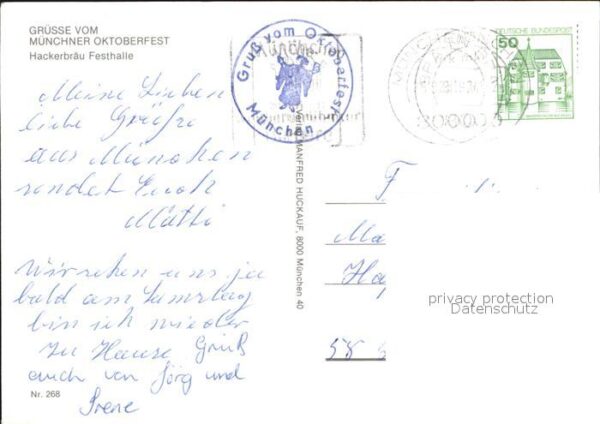 GRÜSSE VOM
MÜNCHNER OKTOBERFEST
Hackerbräu Festhalle
Meine Lieben
liebe Grüße
aus München
sendet Euch
Mutti
Wir sehen uns ja
bald am Samstag
bin ich wieder
zu Hause Gruß
euch von Jörg und
Irene
Nr. 268
Gruß vom Oktoberfest
München
Verlag MANFRED HUCKAUF, 8000 München 40
DEUTSCHE BUNDESPOST
50
F
Ma
Ha
58
privacy protection
Datenschutz